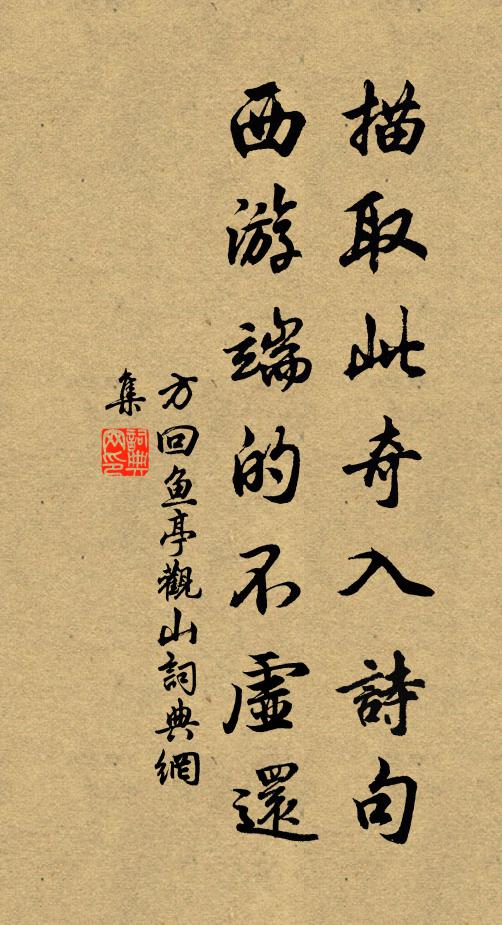 描取此奇入詩句
西游端的不虛還
方回鱼亭觀山詞典網
集
詞典網印